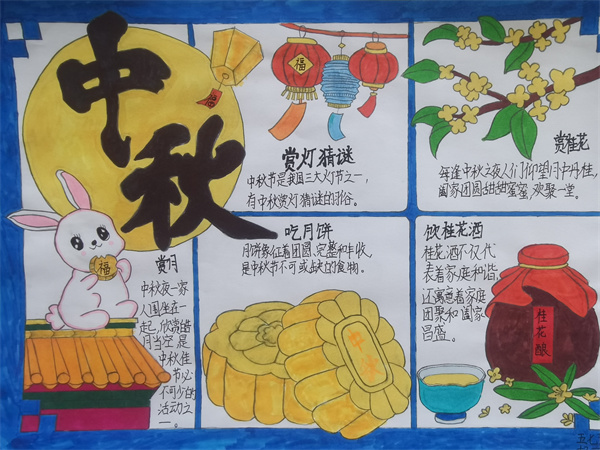 中秋
福
赏灯猜谜
中秋节是我国三大灯节之一,
有中秋赏灯猜谜的习俗。
赏桂花
每逢中秋之夜人们仰望月中丹桂,
阖家团圆甜甜蜜蜜,欢聚一堂。
福
赏月
中秋夜一家
人围坐在一
起,欣赏皓
月当空是
中秋佳
节必
不可少的
活动之
一。
吃月饼
月饼象征着团圆、完整和丰收,
是中秋节不可或缺的食物。
中秋
饮桂花酒
桂花酒不仅代
表着家庭和谐,
还寓意着家庭
团聚和阖家
昌盛。
桂花酿